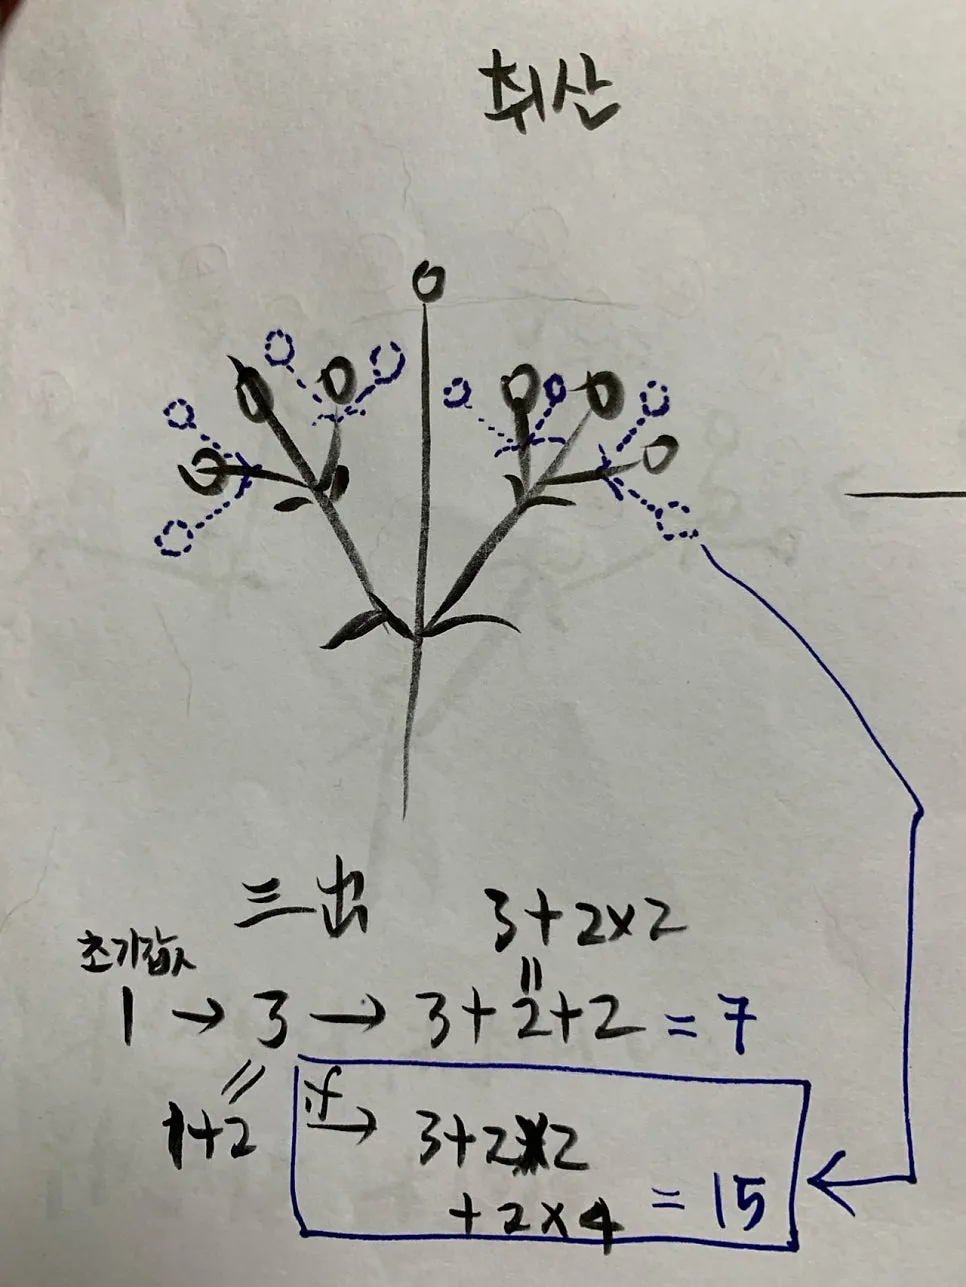 취산
三出
3+2×2
초기값
||
1 → 3 → 3+2+2 = 7
//
1+2
if → 3+2×2
+2×4 = 15